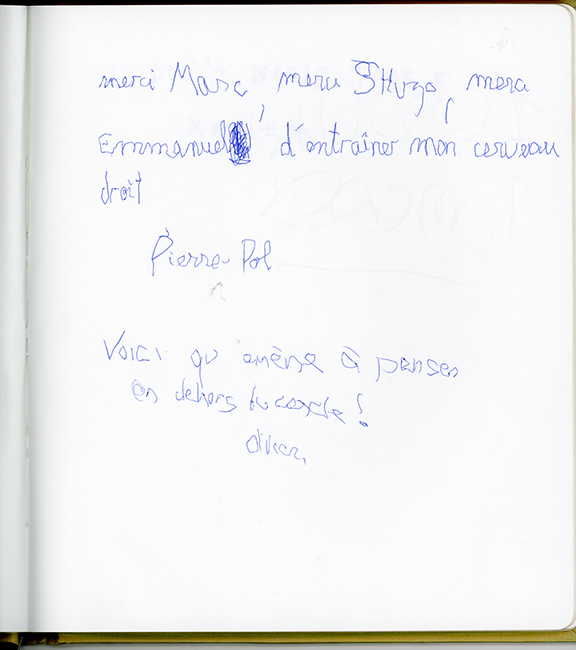 merci Marc, merci Hugo, merci
Emmanuel d'entraîner mon cerveau
droit
Pierre Pol
Voici qu amène à penser
en dehors du cercle !
Olivier,